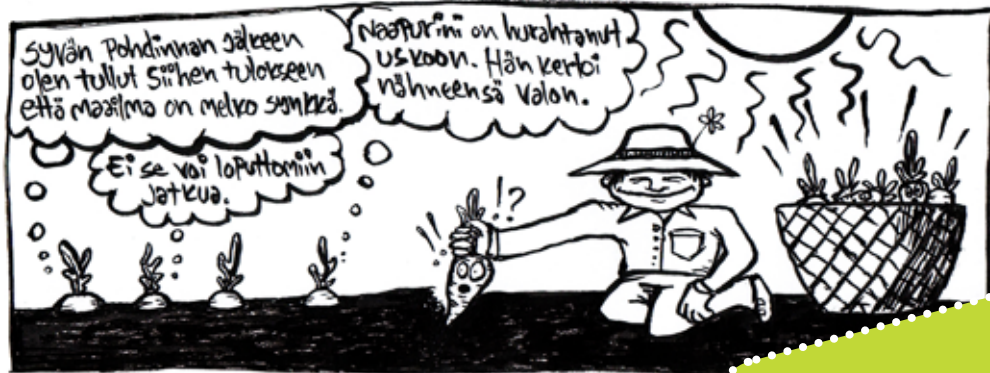 syvän pohdinnan jälkeen
olen tullut siihen tulokseen
että maailma on melko synkkä.
Ei se voi loputtomiin
jatkua.
Naapurini on hurahtanut
uskoon. Hän kertoi
nähneensä valon.
!?